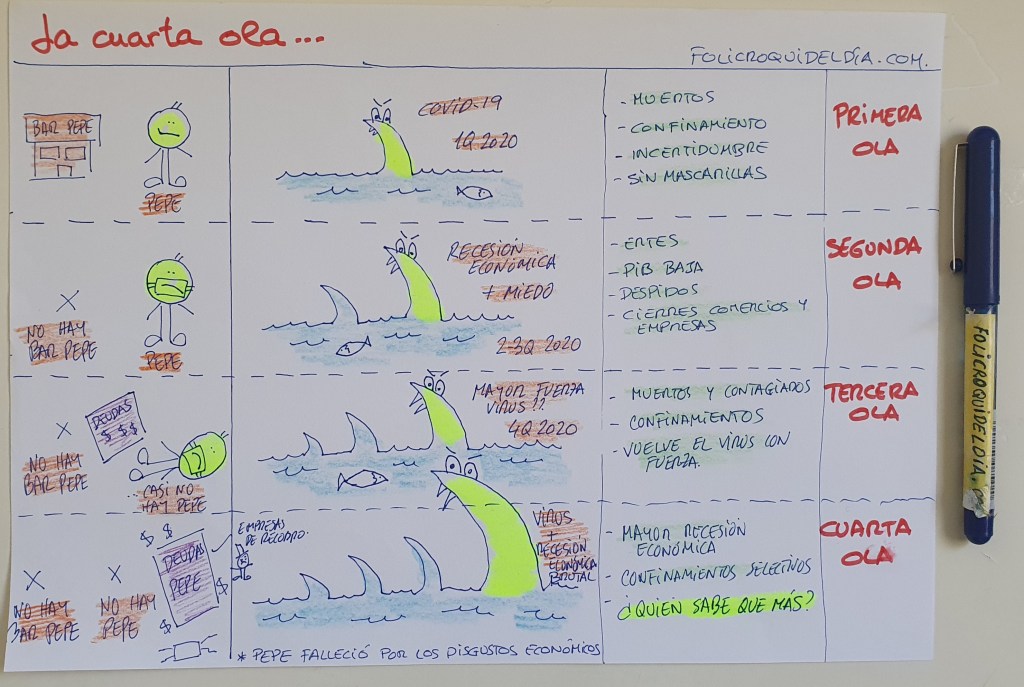 La cuarta ola...
FOLICROQUIDELDÍA.COM.
BAR PEPE
PEPE
COVID-19
1Q 2020
- MUERTOS
- CONFINAMIENTO
- INCERTIDUMBRE
- SIN MASCARILLAS
PRIMERA
OLA
NO HAY
BAR PEPE
PEPE
RECESIÓN
ECONÓMICA
+ MIEDO
2-3Q 2020
- ERTES
- PIB BAJA
- DESPIDOS
- CIERRES COMERCIOS Y
EMPRESAS
SEGUNDA
OLA
NO HAY
BAR PEPE
DEUDAS
$ $ $
...CASI NO
HAY PEPE
MAYOR FUERZA
VIRUS??
4Q 2020
- MUERTOS Y CONTAGIADOS
- CONFINAMIENTOS
- VUELVE EL VIRUS CON
FUERZA.
TERCERA
OLA
NO HAY
BAR PEPE
NO HAY
PEPE
$ $
DEUDAS
PEPE
$
$
EMPRESAS
DE RECOBRO.
VIRUS
+
RECESIÓN
ECONÓMICA
BRUTAL
- MAYOR RECESIÓN
ECONÓMICA
- CONFINAMIENTOS SELECTIVOS
- ¿QUIEN SABE QUE MÁS?
CUARTA
OLA
* PEPE FALLECIÓ POR LOS DISGUSTOS ECONÓMICOS
FOLICROQUIDELDÍA.